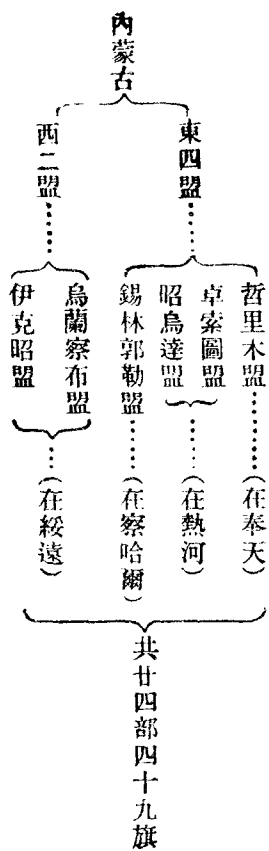 內蒙古
東四盟
哲里木盟……(在奉天)
卓索圖盟
昭烏達盟
……(在熱河)
錫林郭勒盟……(在察哈爾)
西二盟
烏蘭察布盟
伊克昭盟
……(在綏遠)
共廿四部四十九旗